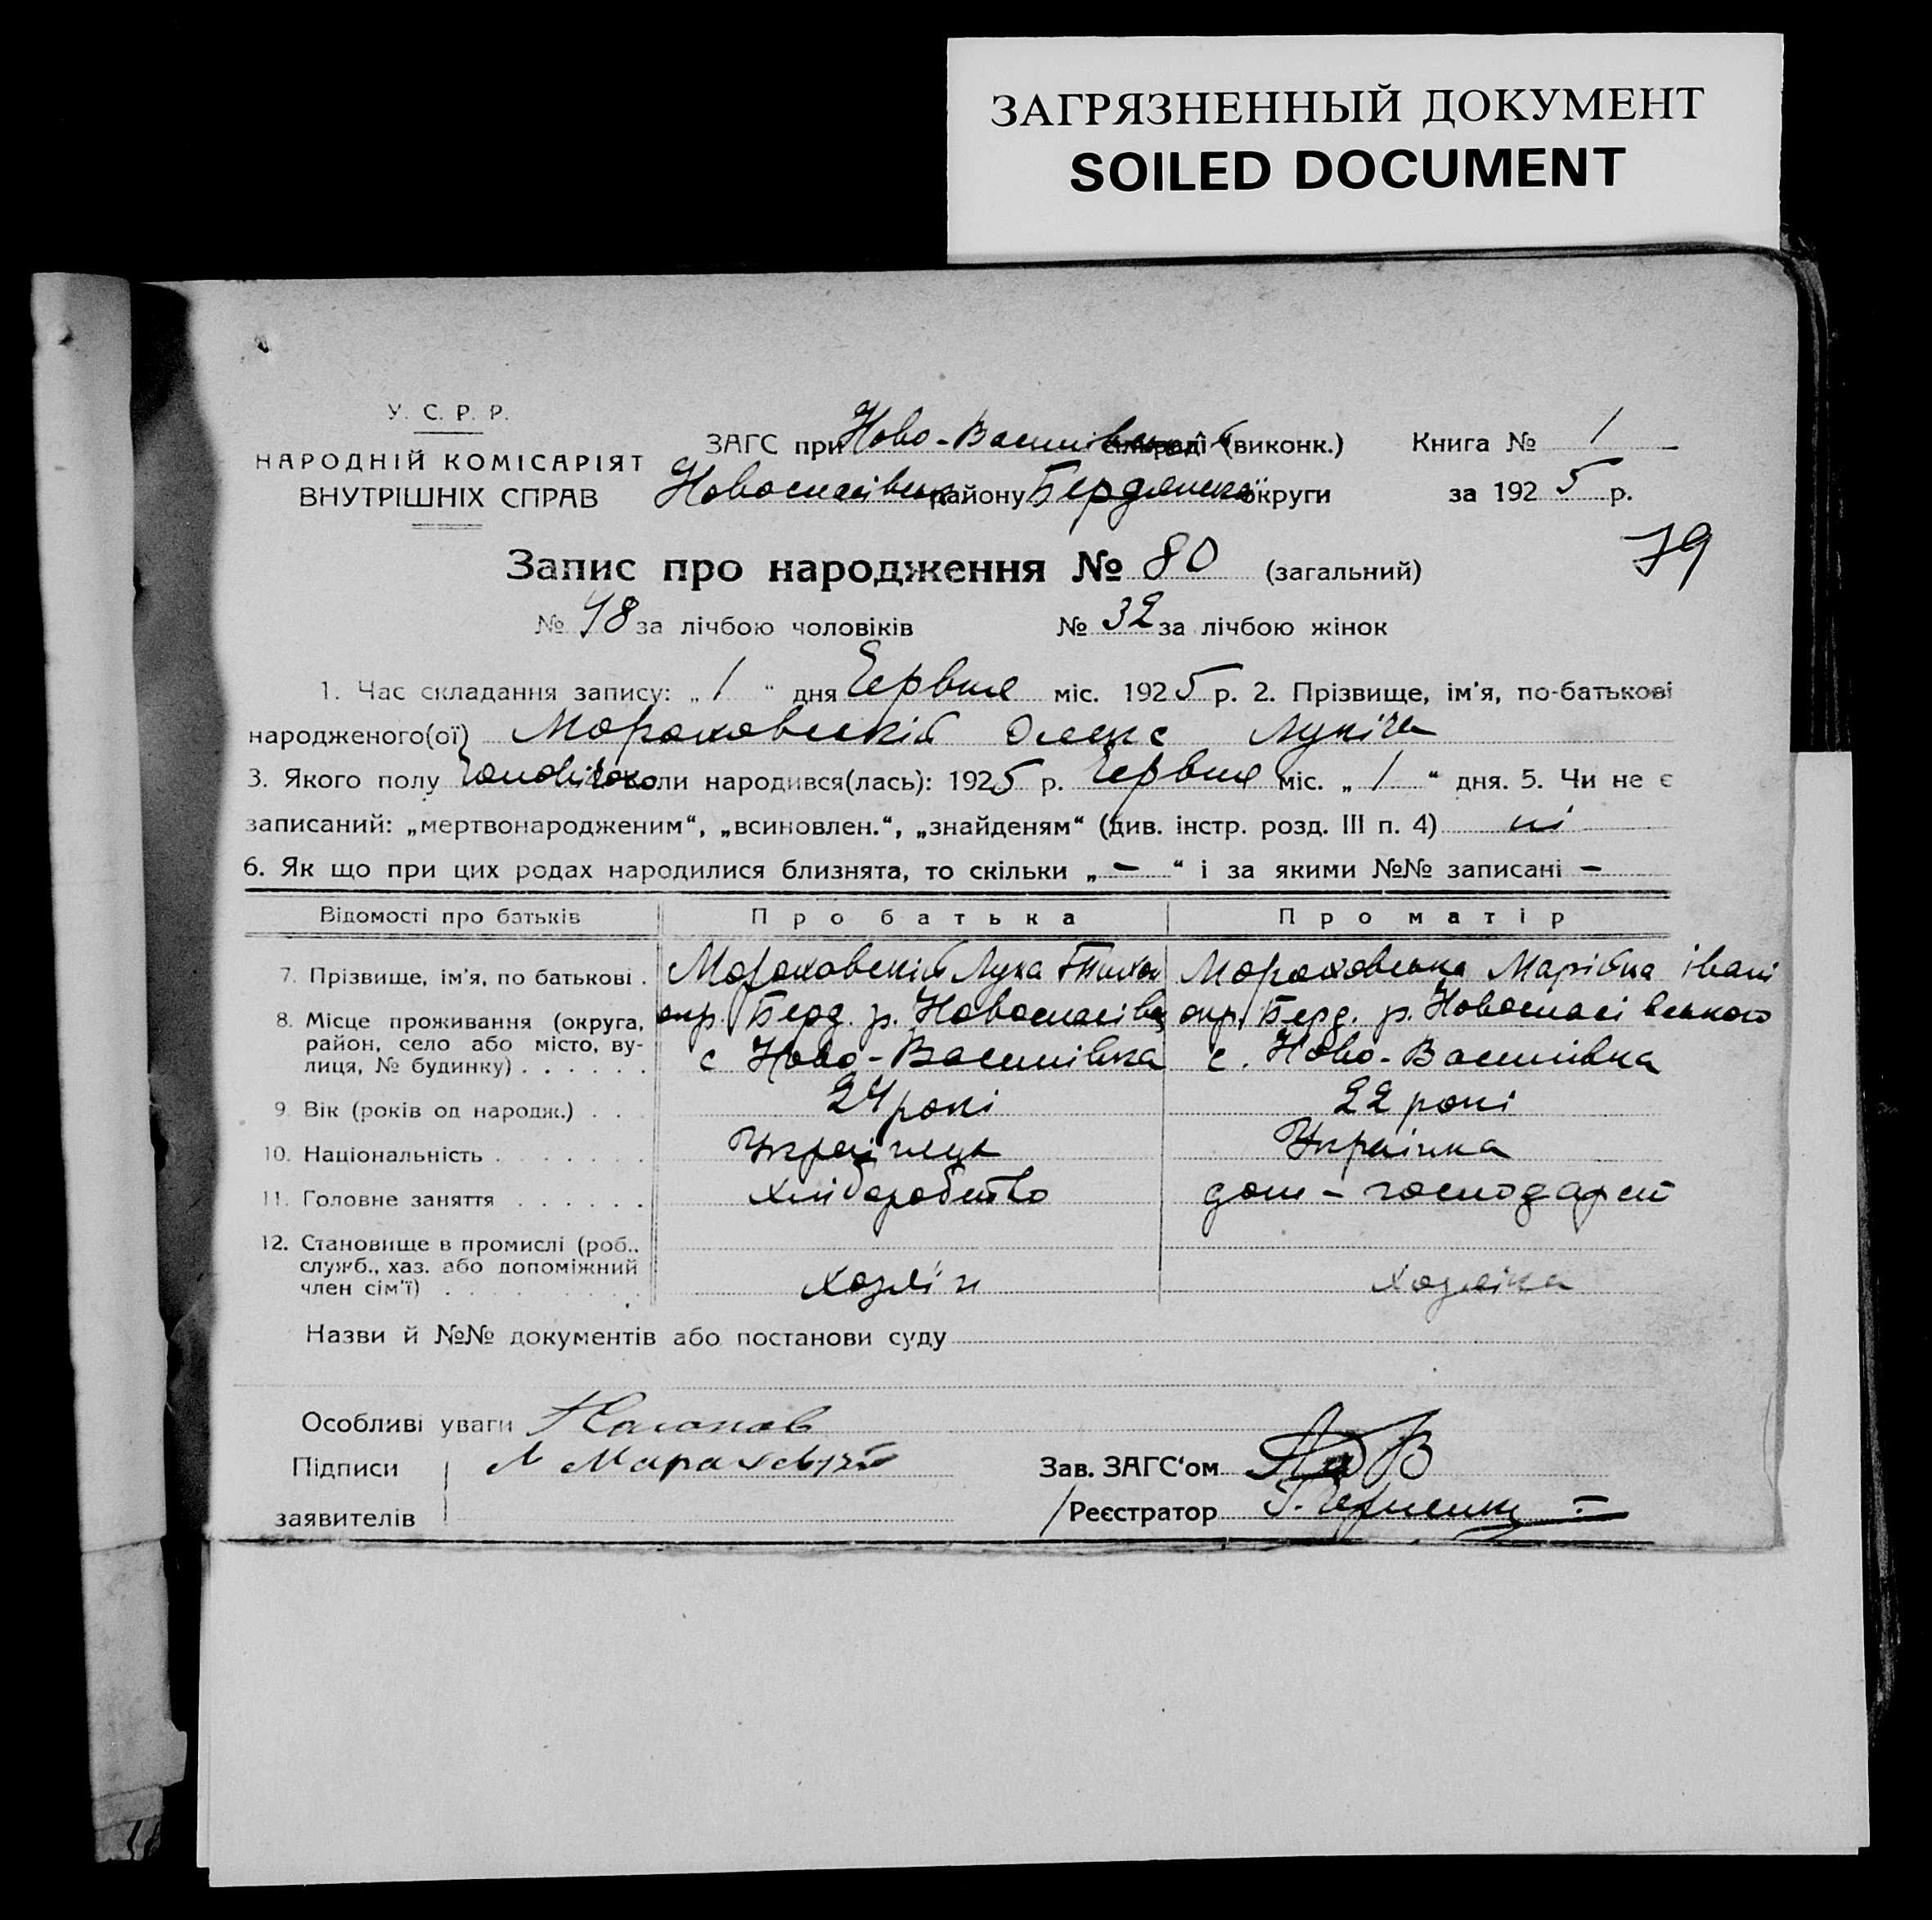 ЗАГРЯЗНЕННЫЙ ДОКУМЕНТ
SOILED DOCUMENT
У. С. Р. Р.
НАРОДНІЙ КОМІСАРІЯТ
ВНУТРІШНІХ СПРАВ
ЗАГС при Ново-Василівській (виконк.) Книга № 1
Новоспасівськ району Бердянської округи за 1925 р.
79
Запис про народження № 80 (загальний)
№ 48 за лічбою чоловіків № 32 за лічбою жінок
1. Час складання запису: „1“ дня Червня міс. 1925 р. 2. Прізвище, ім'я, по-батькові
народженого(ої) Мораховський Олекс Лукіча
3. Якого полу коли народився(лась): 1925 р. Червня міс. „1“ дня. 5. Чи не є
записаний: „мертвонародженим“, „всиновлен.“, „знайденям“ (див. інстр. розд. III п. 4) ні
6. Як що при цих родах народилися близнята, то скільки „ — “ і за якими №№ записані —
Відомості про батьків Про батька Про матір
7. Прізвище, ім'я, по батькові . Мораховскій Лука Тихон Мораховська Марійка івані
8. Місце проживання (округа, район, село або місто, вулиця, № будинку) . . . . . . окр. Берд. р. Новоспасівц окр. Берд. р. Новоспасівського
с Ново-Василівка с. Ново-Василівка
9. Вік (років од народж.) . . . 24 рокі 22 рокі
10. Національність . . . . . . . Українець Українка
11. Головне заняття . . . . . . хліборобство дом-господарст
12. Становище в промислі (роб., служб., хаз. або допоміжний член сім'ї) . . . . . . . . . хозяїн хозяїка
Назви й №№ документів або постанови суду
Особливі уваги
Підписи
заявителів
Зав. ЗАГС‘ом
Реєстратор